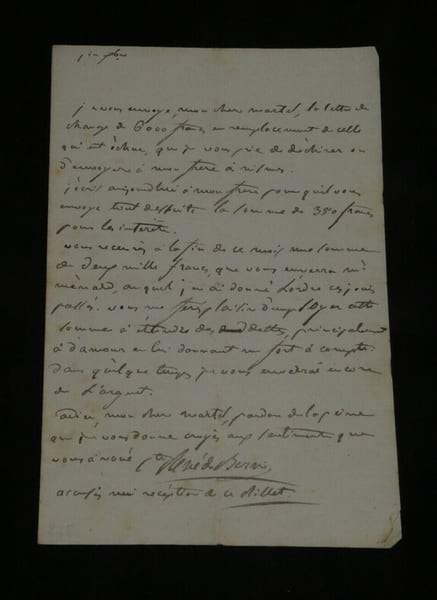 je vous envoye, mon cher martel, la lettre de
change de 6000 francs en remplacement de celle
qui est échue, que je vous prie de déchirer ou
d'envoyer à mon frère à nismes.
j'écris aujourdhui à mon frère pour qu'il vous
envoye tout de suite la somme de 350 francs
pour les interêts.
vous recevrez à la fin de ce mois une somme
de deux mille francs, que vous enverra mr
ménard, auquel j'en ai donné l'ordre ces jours
passés. vous me ferez plaisir d'employer cette
somme à éteindre des dettes, principalement
à d'amour en lui donnant un fort à compte.
dans quelque temps je vous enverrai encore
de l'argent.
adieu, mon cher martel, pardon de la peine
que je vous donne croyez aux sentiments que
vous a voué Cte René de Bernis
accusés moi réception de ce billet